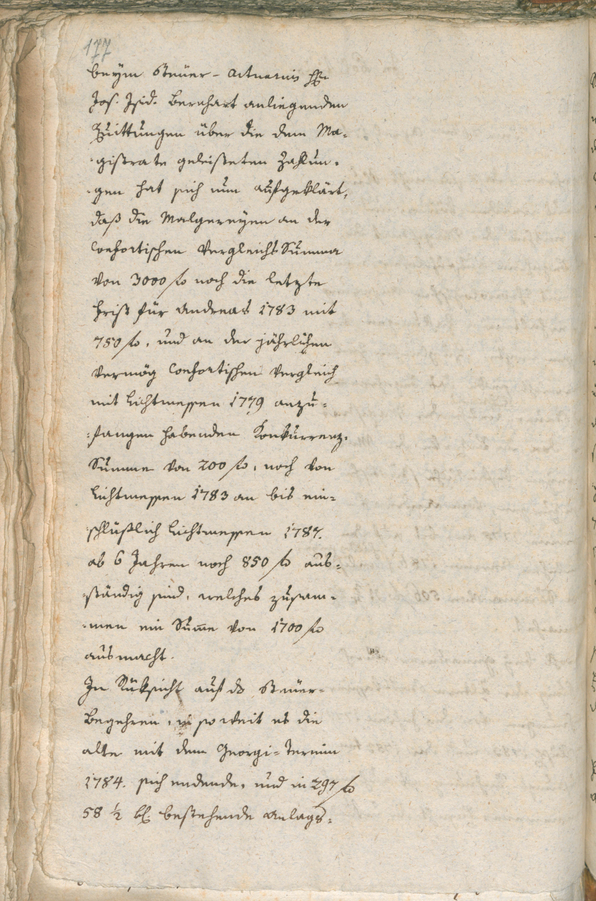 177
beym Steüer-Actuarius Hrn
Jos. Isid. Bernhart anliegenden
Quittungen über die dem Ma-
gistrate geleisteten Zahlun-
gen hat sich nun aufgeklärt,
daß die Malgereyen an der
Vergleichs Summa
von 3000 fo noch die letzte
frist für Andreas 1783 mit
750 fo, und an der jährlichen
vermög Vergleich
mit Lichtmessen 1779 anzu-
fangen habenden Konkurrenz-
Summe von 200 fo, noch von
Lichtmessen 1783 an bis ein-
schlüßlich Lichtmessen
ab 6 Jahren noch 850 fo aus-
ständig sind, welches zusam-
men ein Sume von 1700 fo
ausmacht.
In Rüksicht auf ds Steüer-
Begehren, in so weit es die
alte mit dem Georgi-Termin
1784. sich endende, und in 297 fo
58 ½ bestehende Anlags-